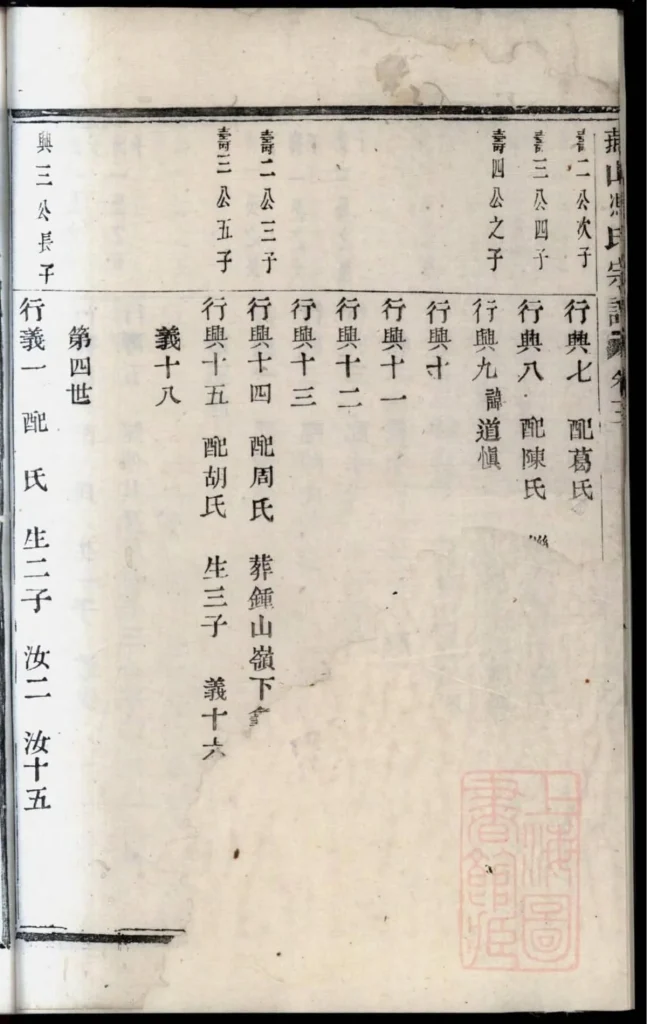 山馮氏宗譜 卷三
壽二公次子 行興七 配葛氏
壽三公四子 行興八 配陳氏
壽四公之子 行興九 諱道愼
行興十
行興十一
行興十二
行興十三
壽二公三子 行興十四 配周氏 葬鍾山嶺下
壽三公五子 行興十五 配胡氏 生三子 義十六
義十八
第四世
興三公長子 行義一 配 氏 生二子 汝二 汝十五
上海圖
書館藏